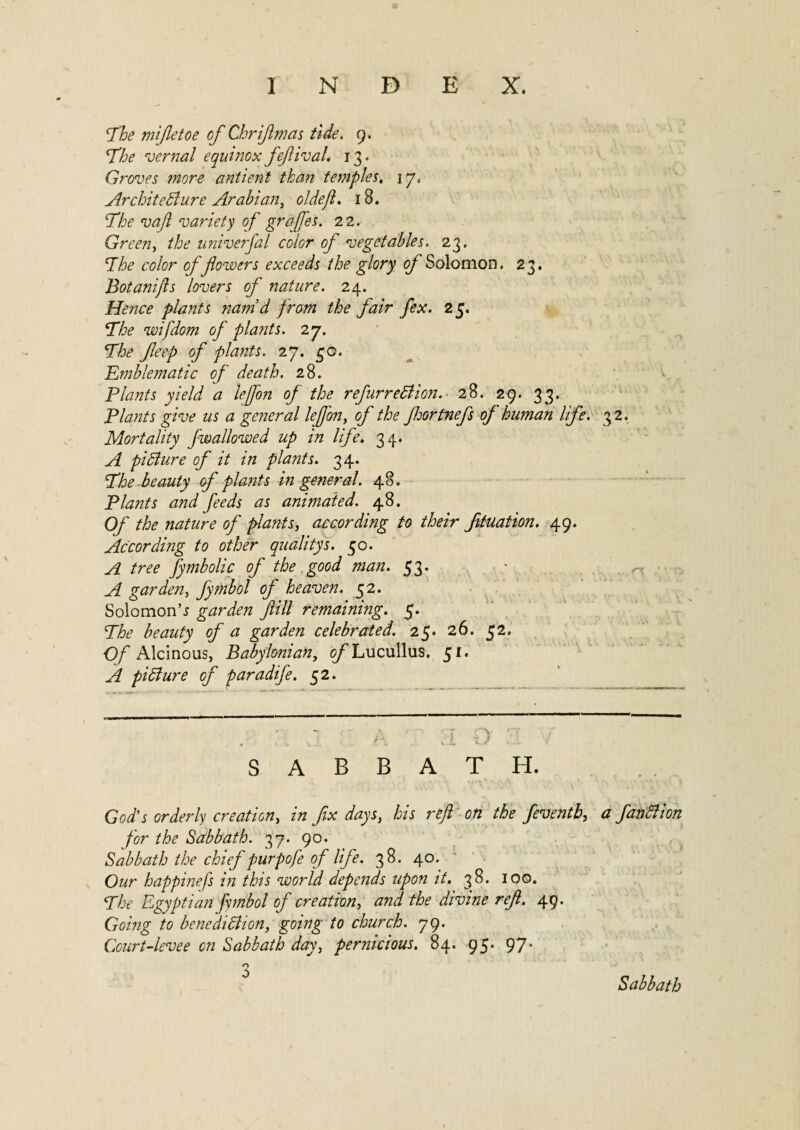 INDEX.
The miſletoe of Chriſtmas tide. 9.
The vernal equinox feſtival. 13.
Groves more antient than temples. 17.
Architecture Arabian, oldeſt. 18.
The vaſt variety of graſſes. 22.
Green, the univerſal color of vegetables. 23.
The color of flowers exceeds the glory of Solomon. 23.
Botaniſts lovers of nature. 24.
Hence plants nam'd from the fair ſex. 25.
The wiſdom of plants. 27.
The ſleep of plants. 27. 50.
Emblematic of death. 28.
Plants yield a leſſon of the reſurrection. 28. 29. 33.
Plants give us a general leſſon, of the ſhortneſs of human life. 32.
Mortality ſwallowed up in life. 34.
A picture of it in plants. 34.
The beauty of plants in general. 48.
Plants and ſeeds as animated. 48.
Of the nature of plants, according to their ſituation. 49.
According to other qualitys. 50.
A tree ſymbolic of the good man. 53.
A garden, ſymbol of heaven. 52.
Solomon's garden ſtill remaining. 5.
The beauty of a garden celebrated. 25. 26. 52.
Of Alcinous, Babylonian, of Lucullus. 51.
A picture of paradiſe. 52.
SABBATH.
God's orderly creation, in ſix days, his reſt on the ſeventh, a ſanction
for the Sabbath. 37. 90.
Sabbath the chief purpoſe of life. 38. 40.
Our happineſs in this world depends upon it. 38. 100.
The Egyptian ſymbol of creation, and the divine reſt. 49.
Going to benediction, going to church. 79.
Court-levee on Sabbath day, pernicious. 84. 95. 97.
3
Sabbath